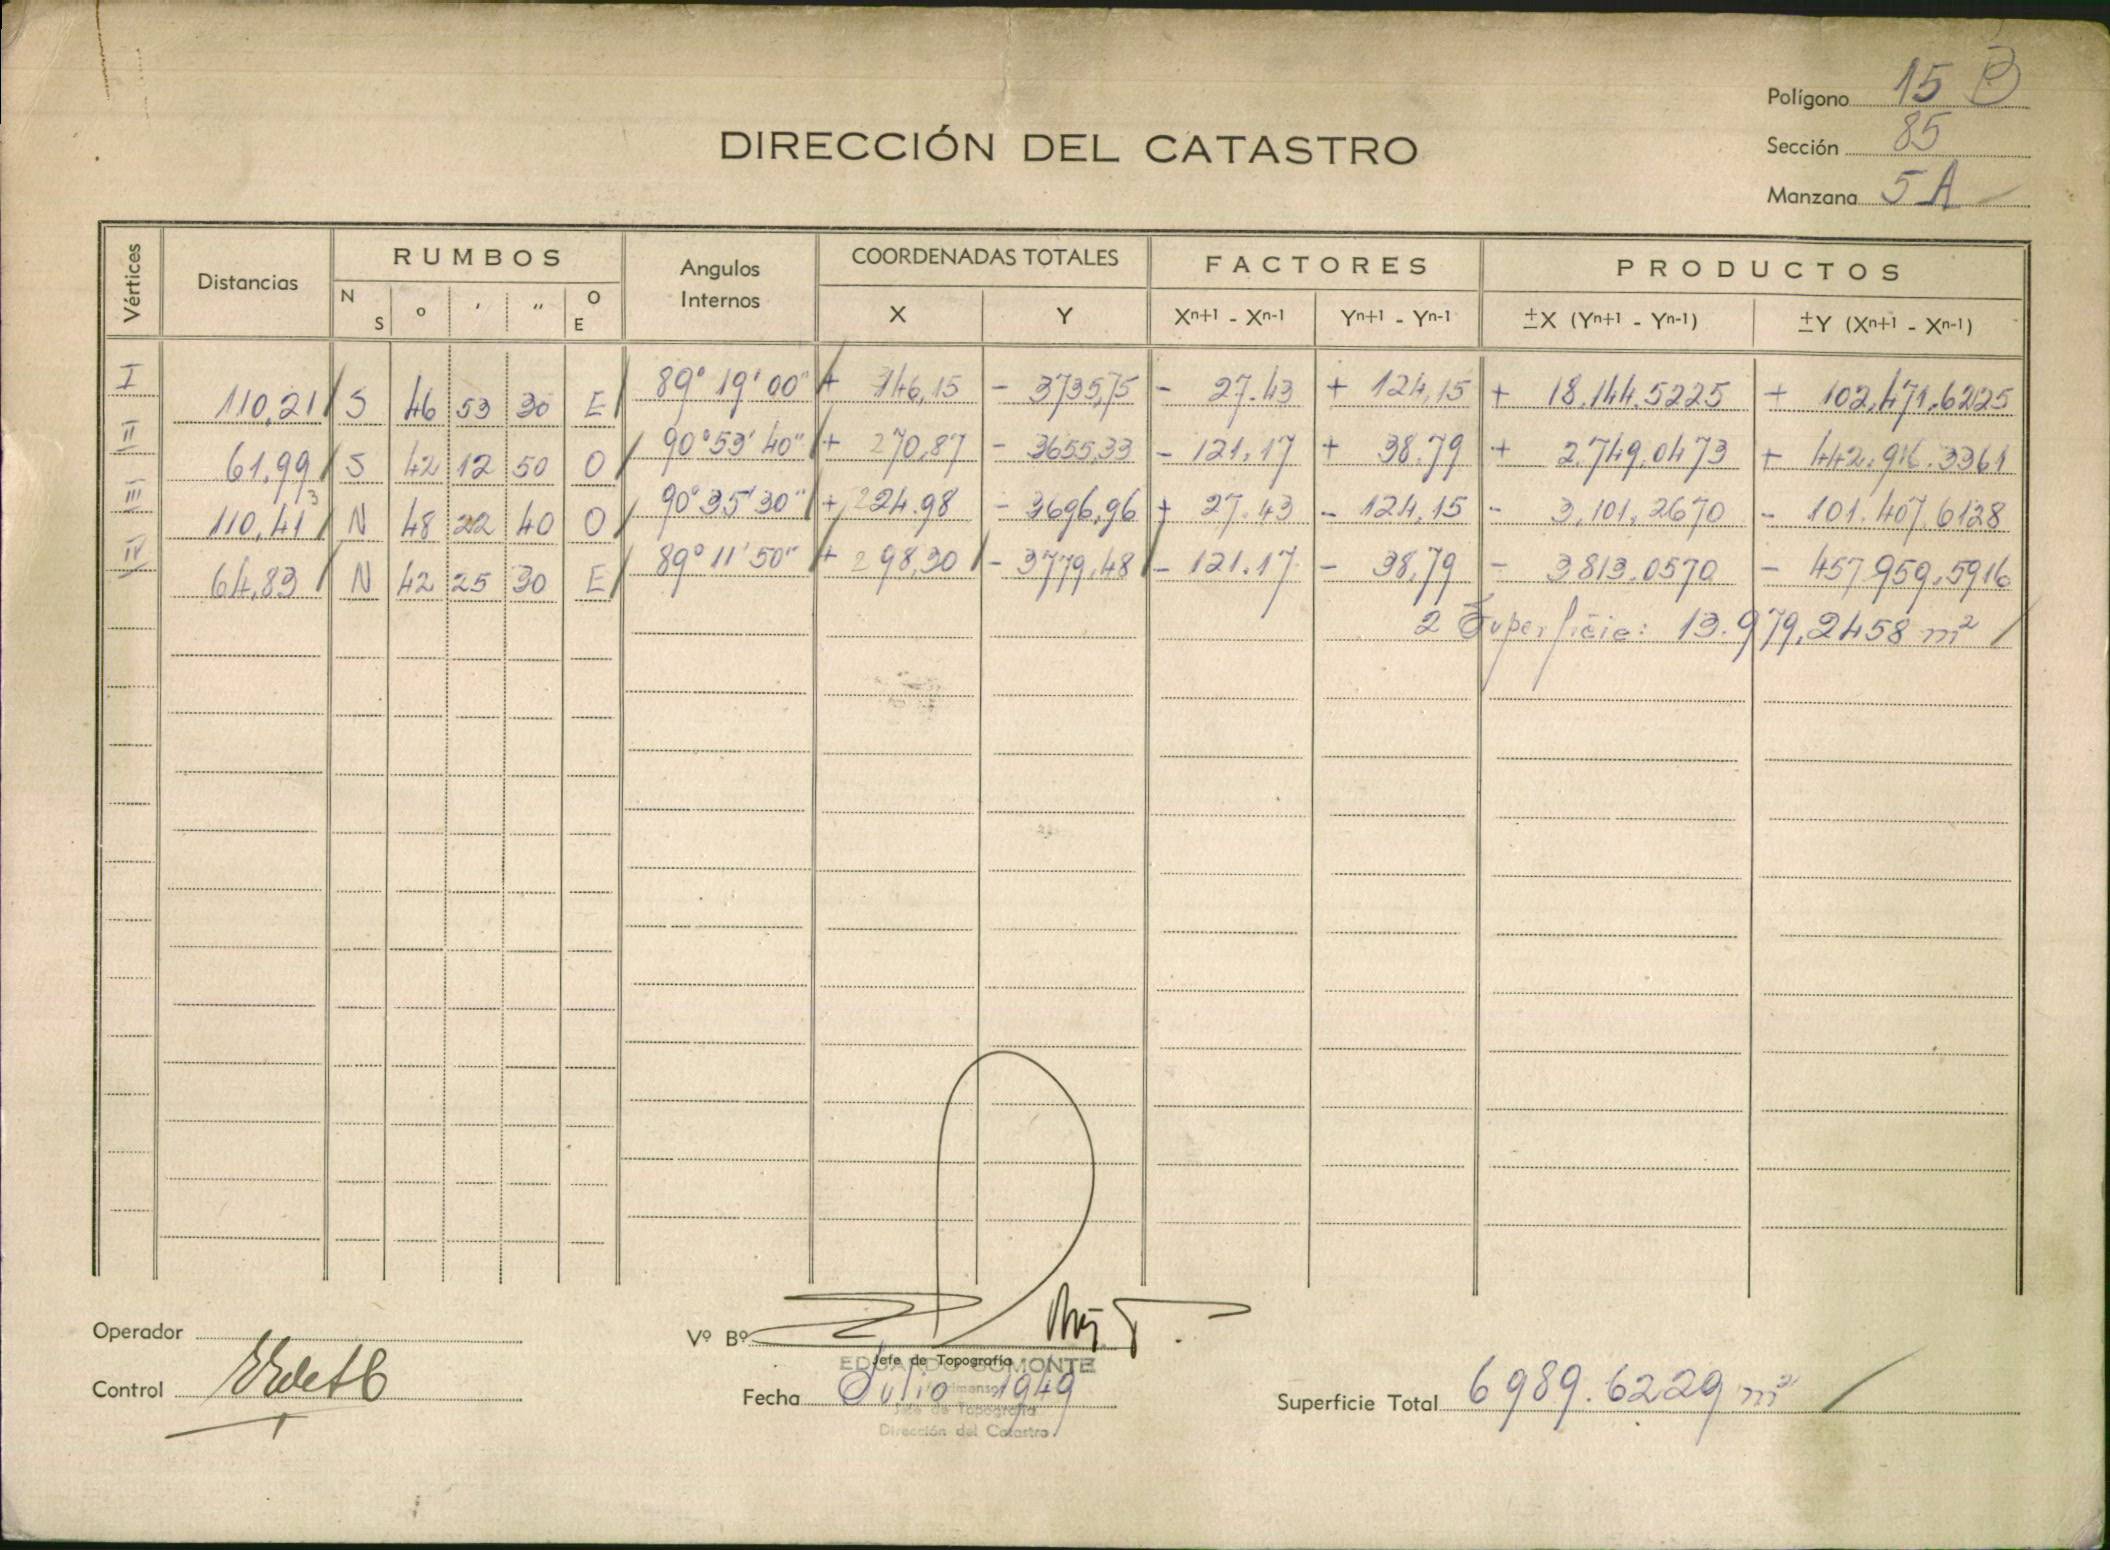 Polígono 15 B
Sección 85
Manzana 5 A
DIRECCIÓN DEL CATASTRO
Vértices Distancias RUMBOS Angulos Internos COORDENADAS TOTALES FACTORES PRODUCTOS
N S o ' '' O E X Y Xn+1 - Xn-1 Yn+1 - Yn-1 ±X (Yn+1 - Yn-1) ±Y (Xn+1 - Xn-1)
I 110,21 S 46 53 30 E 89° 19' 00" + 146,15 - 3735,75 - 27.43 + 124,15 + 18.144.5225 + 102.471.6225
II 61,99 S 42 12 50 O 90° 53' 40" + 270,87 - 3655,33 - 121.17 + 38.79 + 2.749.0473 + 442.916.3361
III 110,41 3 N 48 22 40 O 90° 35' 30" + 224.98 - 3696,96 + 27.43 - 124,15 - 3,101,2670 - 101.407.6128
IV 64,83 N 42 25 30 E 89° 11' 50" + 298,30 - 3779,48 - 121.17 - 38,79 - 3813.0570 - 457.959,5916
2 Superficie: 13.979,2458 m²
Operador
Vº Bº
Jefe de Topografía
EDUARDO COMONTE
Control
Fecha Julio 1949
Jefe de Topografía
Dirección del Catastro
Superficie Total 6989.6229 m²